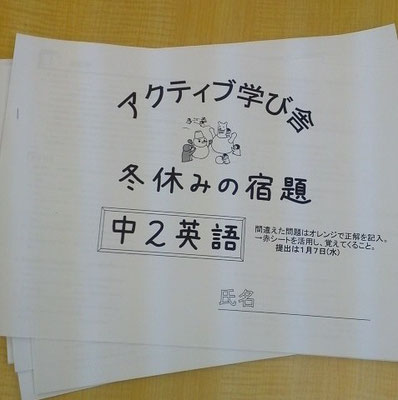 アクティブ学び舎
冬休みの宿題
中2英語
間違えた問題はオレンジで正解を記入。
→赤シートを活用し、覚えてくること。
提出は1月7日(水)
氏名